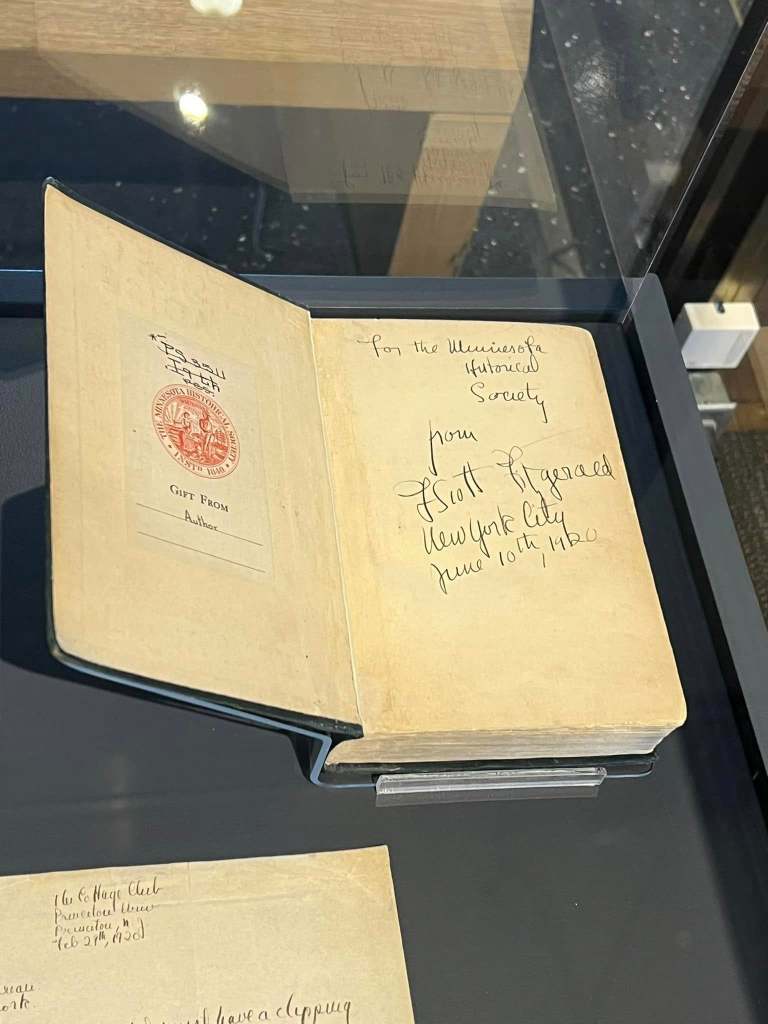 THE MINNESOTA HISTORICAL SOCIETY
INSTD 1849
GIFT FROM
Author
For the Minnesota
Historical
Society
from
F Scott Fitzgerald
New York City
June 10th, 1920
The Cottage Club
Princeton Univ
Princeton, N.J
Feb 29th, 1920
have a clipping